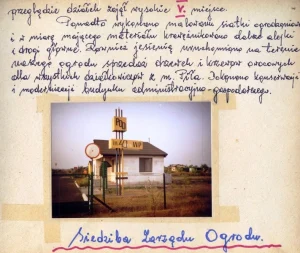 przeglądzie działek zajął wysokie V. miejsce.
Ponadto wykonano malowanie siatki ogrodzeniowej
i w miarę mającego materiału krawężnikowano dalsze alejki
i drogi główne. Również jesienią uruchomiono na terenie
naszego ogrodu sprzedaż drzewek i krzewów owocowych
dla wszystkich działkowiczów z m. Piła. Dokonano konserwacji
i modernizacji budynku administracyjno-gospodarczego.
Siedziba Zarządu Ogrodu.